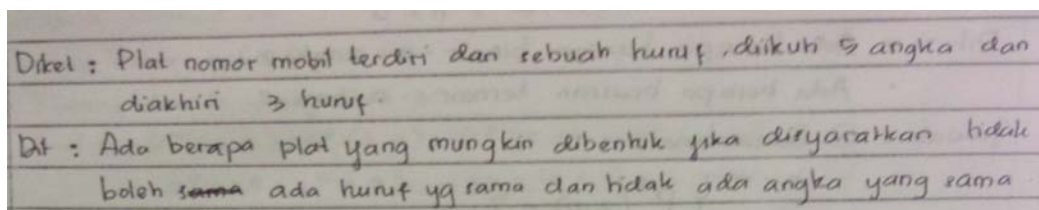 Diket : Plat nomor mobil terdiri dari sebuah huruf, diikuti 5 angka dan
diakhiri 3 huruf.
Dit : Ada berapa plat yang mungkin dibentuk jika disyaratkan tidak
boleh sama ada huruf yg sama dan tidak ada angka yang sama